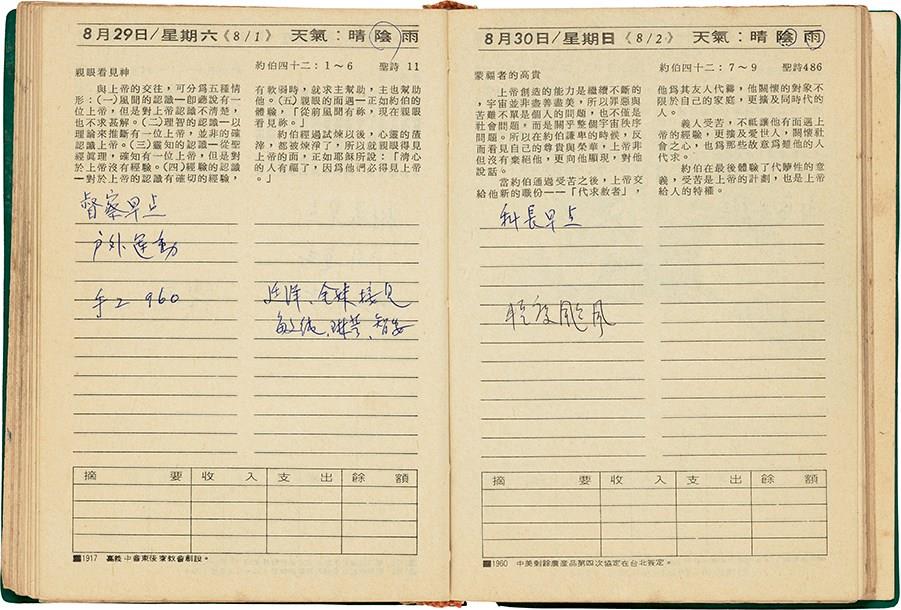 8月29日/星期六《8/1》 天氣：晴 陰 雨
約伯四十二：1～6 聖詩 11
親眼看見神
與上帝的交往，可分爲五種情
形：(一)風聞的認識—即聽說有一
位上帝，但是對上帝認識不清楚，
也不求甚解。(二)理智的認識—以
理論來推斷有一位上帝，並非的確
認識上帝。(三)靈知的認識—從聖
經眞理，確知有一位上帝，但是對
於上帝沒有經驗。(四)經驗的認識
—對於上帝的認識有確切的經驗，
有軟弱時，就求主幫助，主也幫助
他。(五)親眼的面遇—正如約伯的
體驗，「從前風聞有祢，現在親眼
看見祢。」
約伯經過試煉以後，心靈的渣
滓，都被煉淨了，所以就親眼得見
上帝的面，正如耶穌所說：「清心
的人有福了，因爲他們必得見上帝
。」
督察早点
户外運動
手工 960
接見
摘 要 收 入 支 出 餘 額
1917 嘉義中會東後寮教會創設。
8月30日/星期日《8/2》 天氣：晴 陰 雨
約伯四十二：7～9 聖詩486
蒙福者的高貴
上帝創造的能力是繼續不斷的
，宇宙並非盡善盡美，所以罪惡與
苦難不單是個人的問題，也不僅是
社會問題，而是關乎整個宇宙秩序
問題。所以在約伯謙卑的時候，反
而看見自己的尊貴與榮華，上帝非
但沒有棄絕他，更向他顯現，對他
說話。
當約伯通過受苦之後，上帝交
給他新的職份——「代求教者」，
他爲其友人代禱，他關懷的對象不
限於自己的家庭，更擴及同時代的
人。
義人受苦，不祇讓他有面遇上
帝的經驗，更擴及愛世人，關懷社
會之心，也爲那些故意爲難他的人
代求。
約伯在最後體驗了代贖性的意
義，受苦是上帝的計劃，也是上帝
給人的特權。
科長早点
颱風
摘 要 收 入 支 出 餘 額
1960 中美剩餘農產品第四次協定在台北簽定。